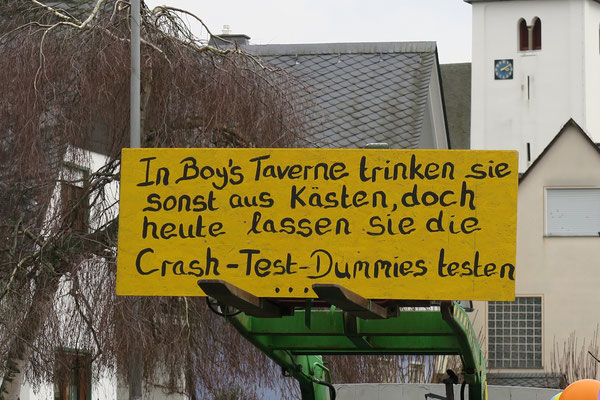 In Boy's Taverne trinken sie
sonst aus Kästen, doch
heute lassen sie die
Crash-Test-Dummies testen
...